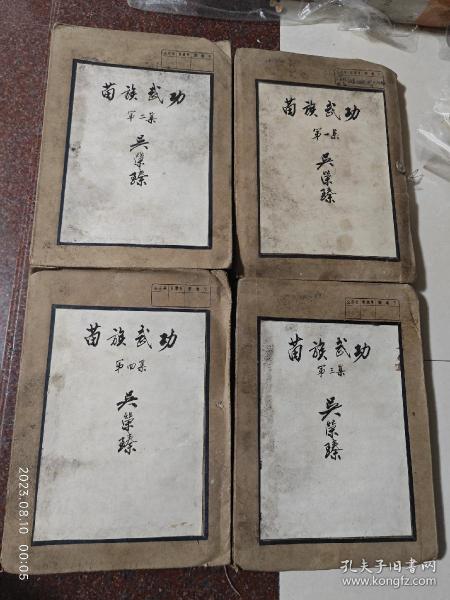 苗族武功
第二集
吴荣臻
苗族武功
第一集
吴荣臻
苗族武功
第四集
吴荣臻
苗族武功
第三集
吴荣臻
2023.08.10 00:05
孔夫子旧书网
www.kongfz.com